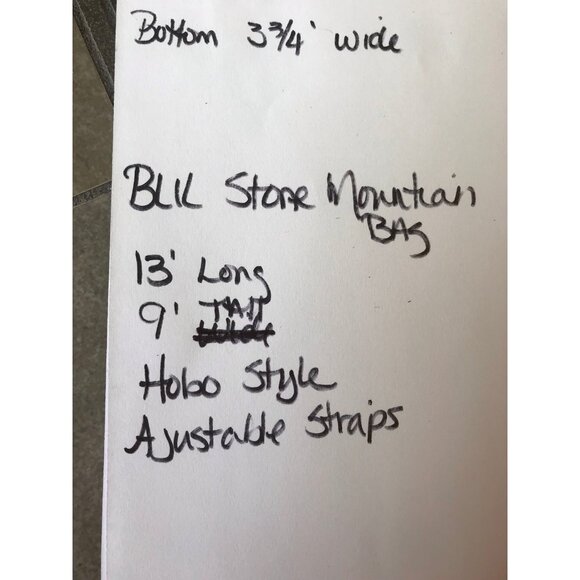 Bottom 3 3/4' wide
BLK Stone Mountian
BAg
13' Long
9' TAll
Hobo Style
Ajustable Straps